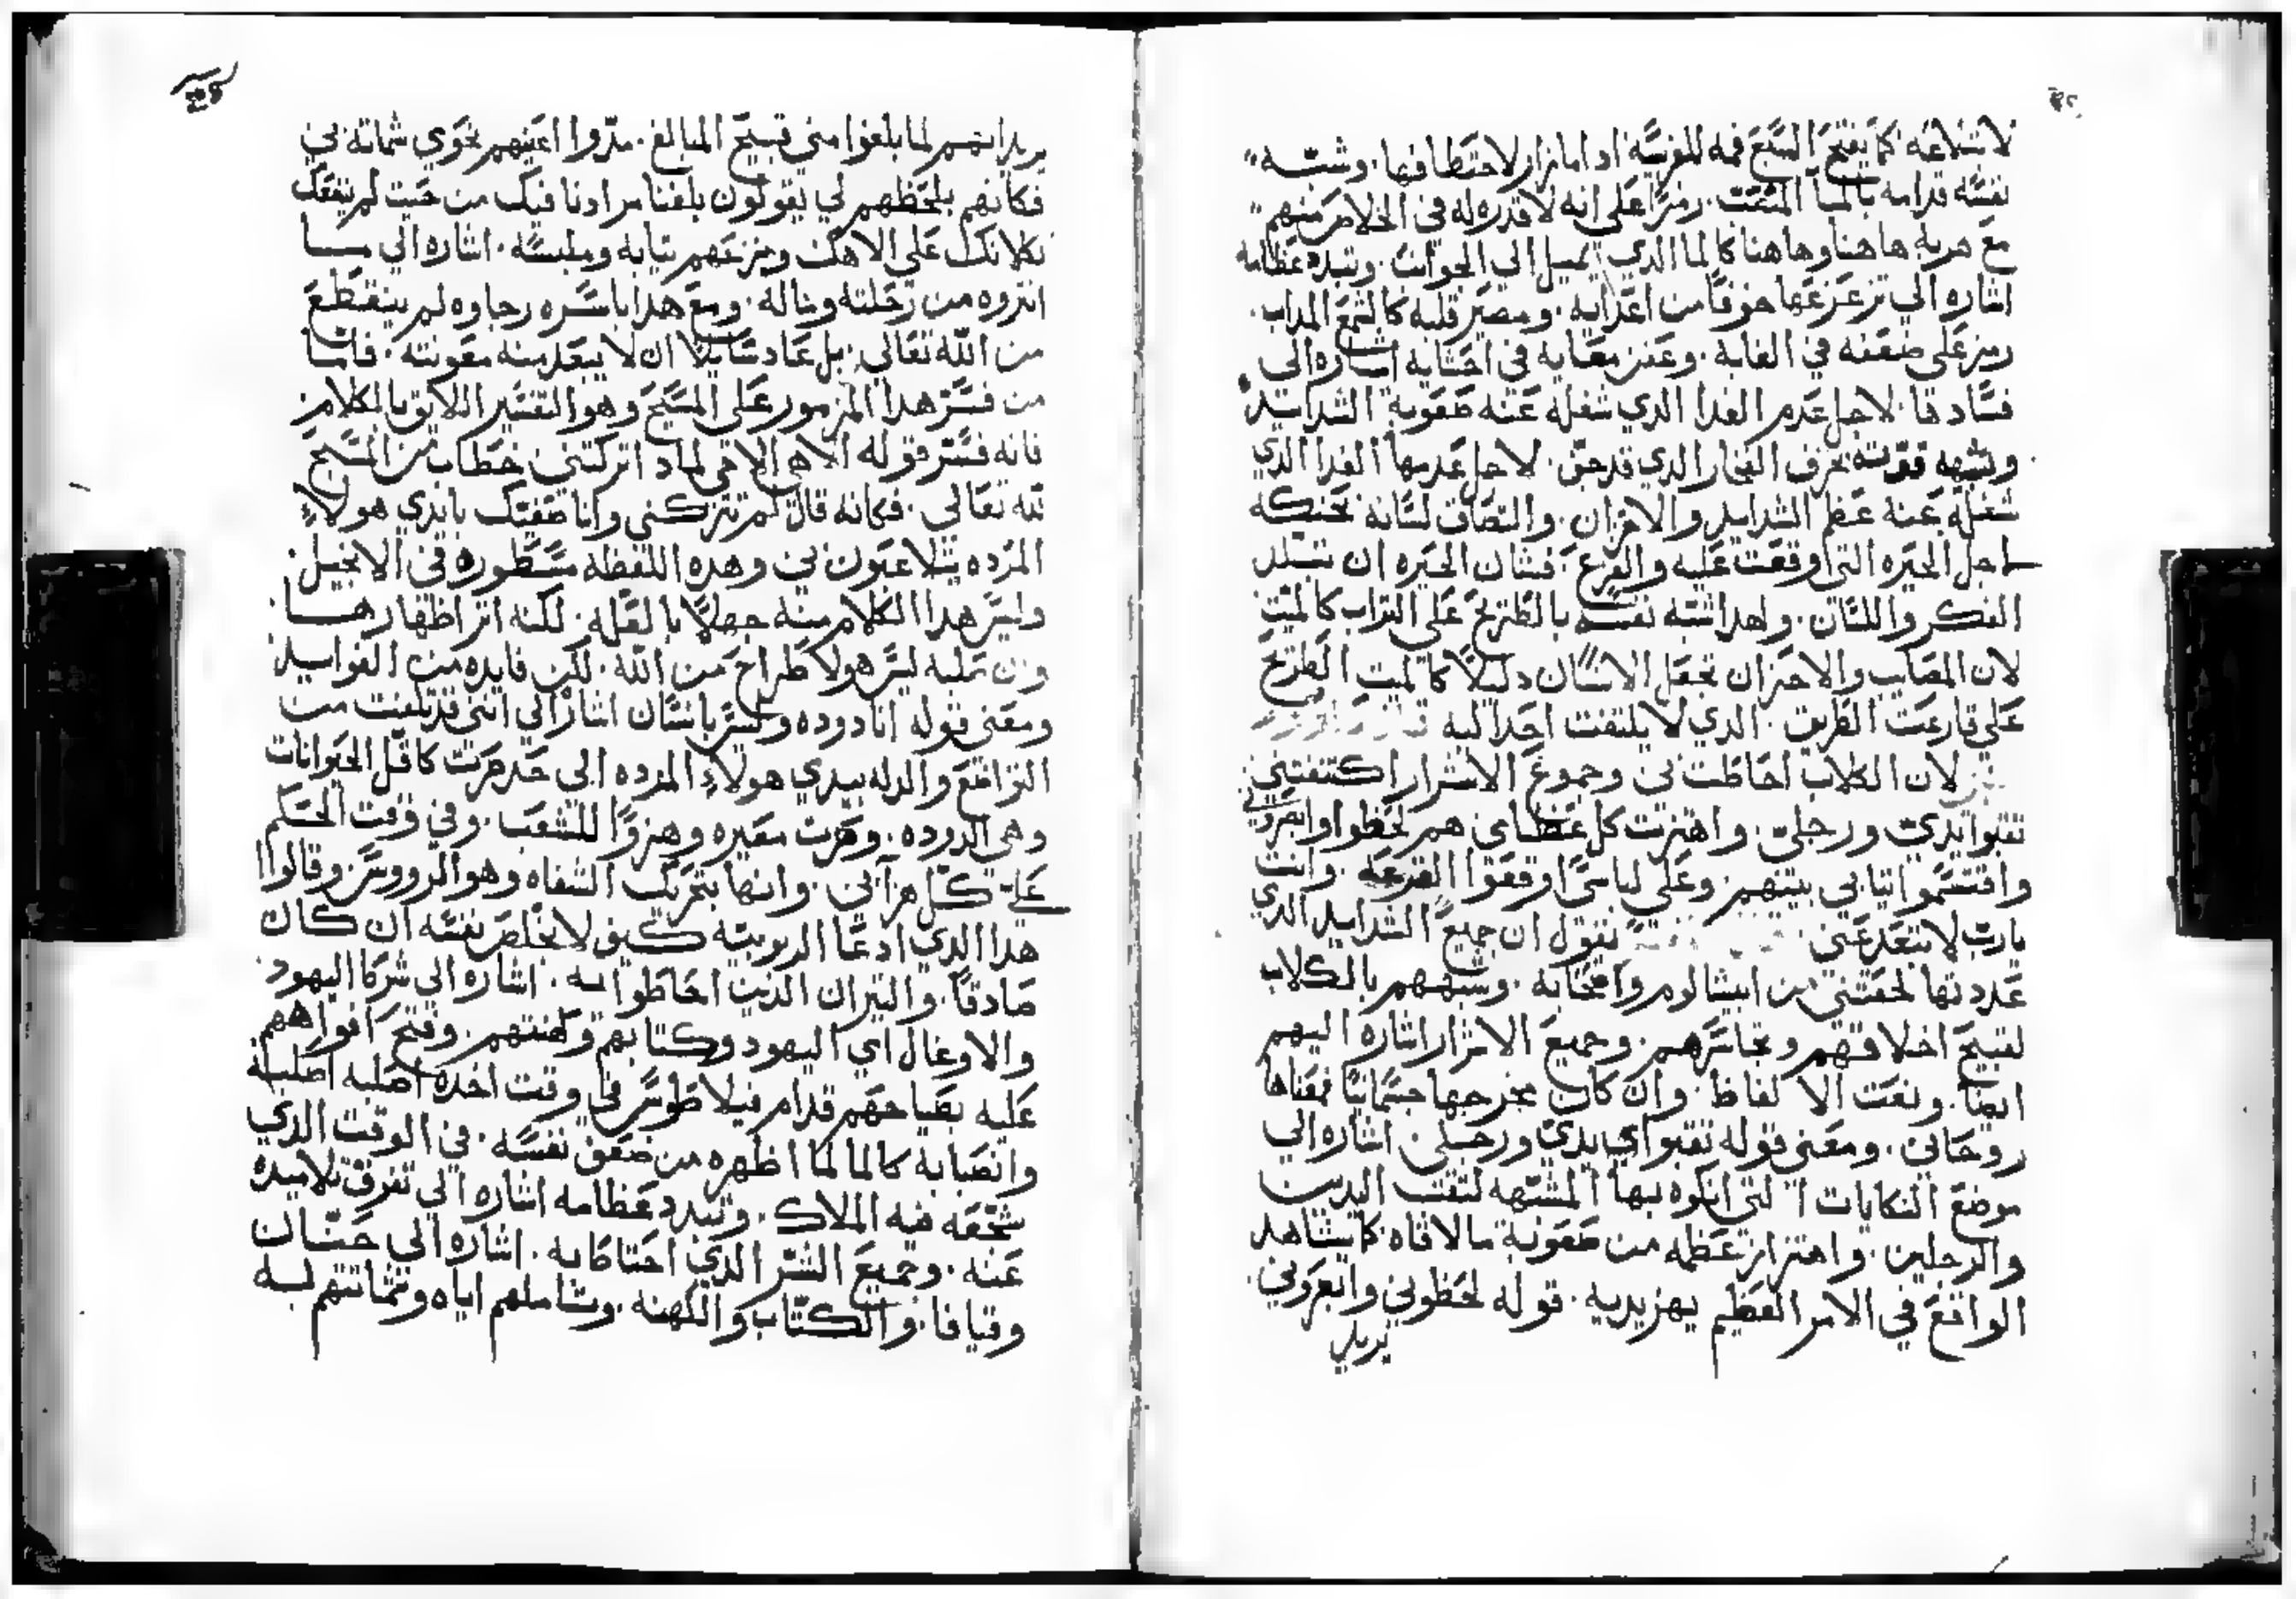 لابتلاعه كما يفتح السبع فمه للفريسه اداما زار لاختطافها. وشبه
نفسه قدامه بالما المنفت. رمزًا على انه لا قدره له في الخلاص منهم
مع هربه هاهنا وهاهنا كالما الدي يميل الي الجوانب. وتبدد عظامه
اشاره الي تزعزعها خوفًا من اعدايه. ومصير قلبه كالشمع المداب.
رمز على ضعفه في الغايه. وعند معايه في احشايه اشاره الى
فسادها. لاجل عدم الغدا الدي شغله عنه صعوبة الشدايد
وشبه قوته بخزف الفخار الدي قدحق. لاجل عدمها الغدا الدي
شغله عنه عظم الشدايد والاحزان. والتصاق لسانه بحنكه
لاجل الحيره التي وقعت عليه والفزع. فشان الحيره ان تبلد
الفكر واللسان. ولهدا شبه نفسه بالطريح على التراب كالميت
لان المصايب والاحزان تجعل الانسان دليلاً كالميت الطريح
على قارعت الطريق. الدي لا يلتفت احدا اليه
لان الكلاب احاطت بي وجموع الاشرار اكتنفتني
تقبوا يديّ ورجليّ. واهتزت كل عظامي هم لحظوا وابصروني
واقتسموا تيابي بينهم. وعلى لباسي اوقعوا القرعه. وانت
يارب لا تبعد عني يقول ان جميع الشدايد الدي
عددتها لحقتني من ابيشالوم واصحابه. وشبههم بالكلاب
لقبيح اخلاقهم وتجاسرهم. وجميع الاشرار اشاره اليهم
ايضًا. ونعت الالفاظ. وان كان مخرجها جسمانيًا فمعناها
روحاني. ومعنى قوله تقبوا يديّ ورجلي اشاره الي
موضع النكايات التي انكوه بها المشبهه لتقب اليدين
والرجلين. واهتزاز عظمه من صعوبة مالاقاه. كما يشاهد
الواقع في الامر العظيم يهز يديه. قوله لحظوني وابصروني.
يريد
يريد انهم لما بلغوا مني قبيح المبالغ. مدّوا اعينهم نحوي شماتة بي
فكانهم بلحظهم لي يقولون بلغنا مرادنا فيك من حيت لم ينفعك
تكلانك على الاهك ومزعهم تيابه وملبسه. اشاره الي ما
انتروه من رحلته وماله. ومع هدا باسره رجاوه لم ينقطع
من الله تعالى. بل عاد سايلاً ان لا يبعد منه معونته. فاما
من فسر هدا المزمور على المسيح وهو التفسير اللايق بالكلام
فانه فسر قوله الاهي الاهي لمادا تركتني خطاب من المسيح
لله تعالي. فكانه قال لم تتركني وانا صفيك بايدي هولاء
المرده يتلاعبون بي وهده اللفظه مسطوره في الانجيل.
وليس هدا الكلام منه جهلاً بالعله. لكنه اتر اظهارها
وان صلبه ليس هو لاطراح من الله. لكن فايده من الفوايد
ومعنى قوله انا دوده ولست بانسان اشاره الي انني قد بلغت من
التواضع والدله بيدي هولاء المرده الى حد صرت كاقل الحيوانات
وهي الدوده. وصرت معيره وهزوًا للشعب. وفي وقت الحكم
عليّ كل من رآني. وانها بتحريك الشفاه وهو الرووس. وقالوا
هدا الدي ادعا الربوبيه كيف لا يخلص نفسه ان كان
صادقًا. والتيران الدين احاطوا به. اشاره الي شركا اليهود.
والاوغال اي اليهود وكتابهم وكهنتهم. وفتح افواههم
عليه بصياحهم قدام فيلاطوس في وقت اخده اصلبه اصلبه
وانصبابه كالما لما اظهره من ضعف نفسه. في الوقت الدي
شجعه فيه الملاك. وتبدد عظامه اشاره الي تفرق تلاميده
عنه. وجميع الشر الدي احتاكا به. اشاره الي حنان
وقيافا. والكتّاب والكهنه. وتاملهم اياه وشماتتهم به